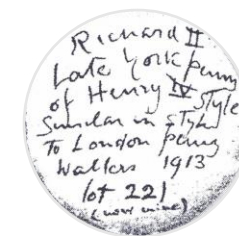 Richard II
Late York penny
of Henry IV style
Similar in style
To London penny
Walters 1913
lot 221
(now mine)